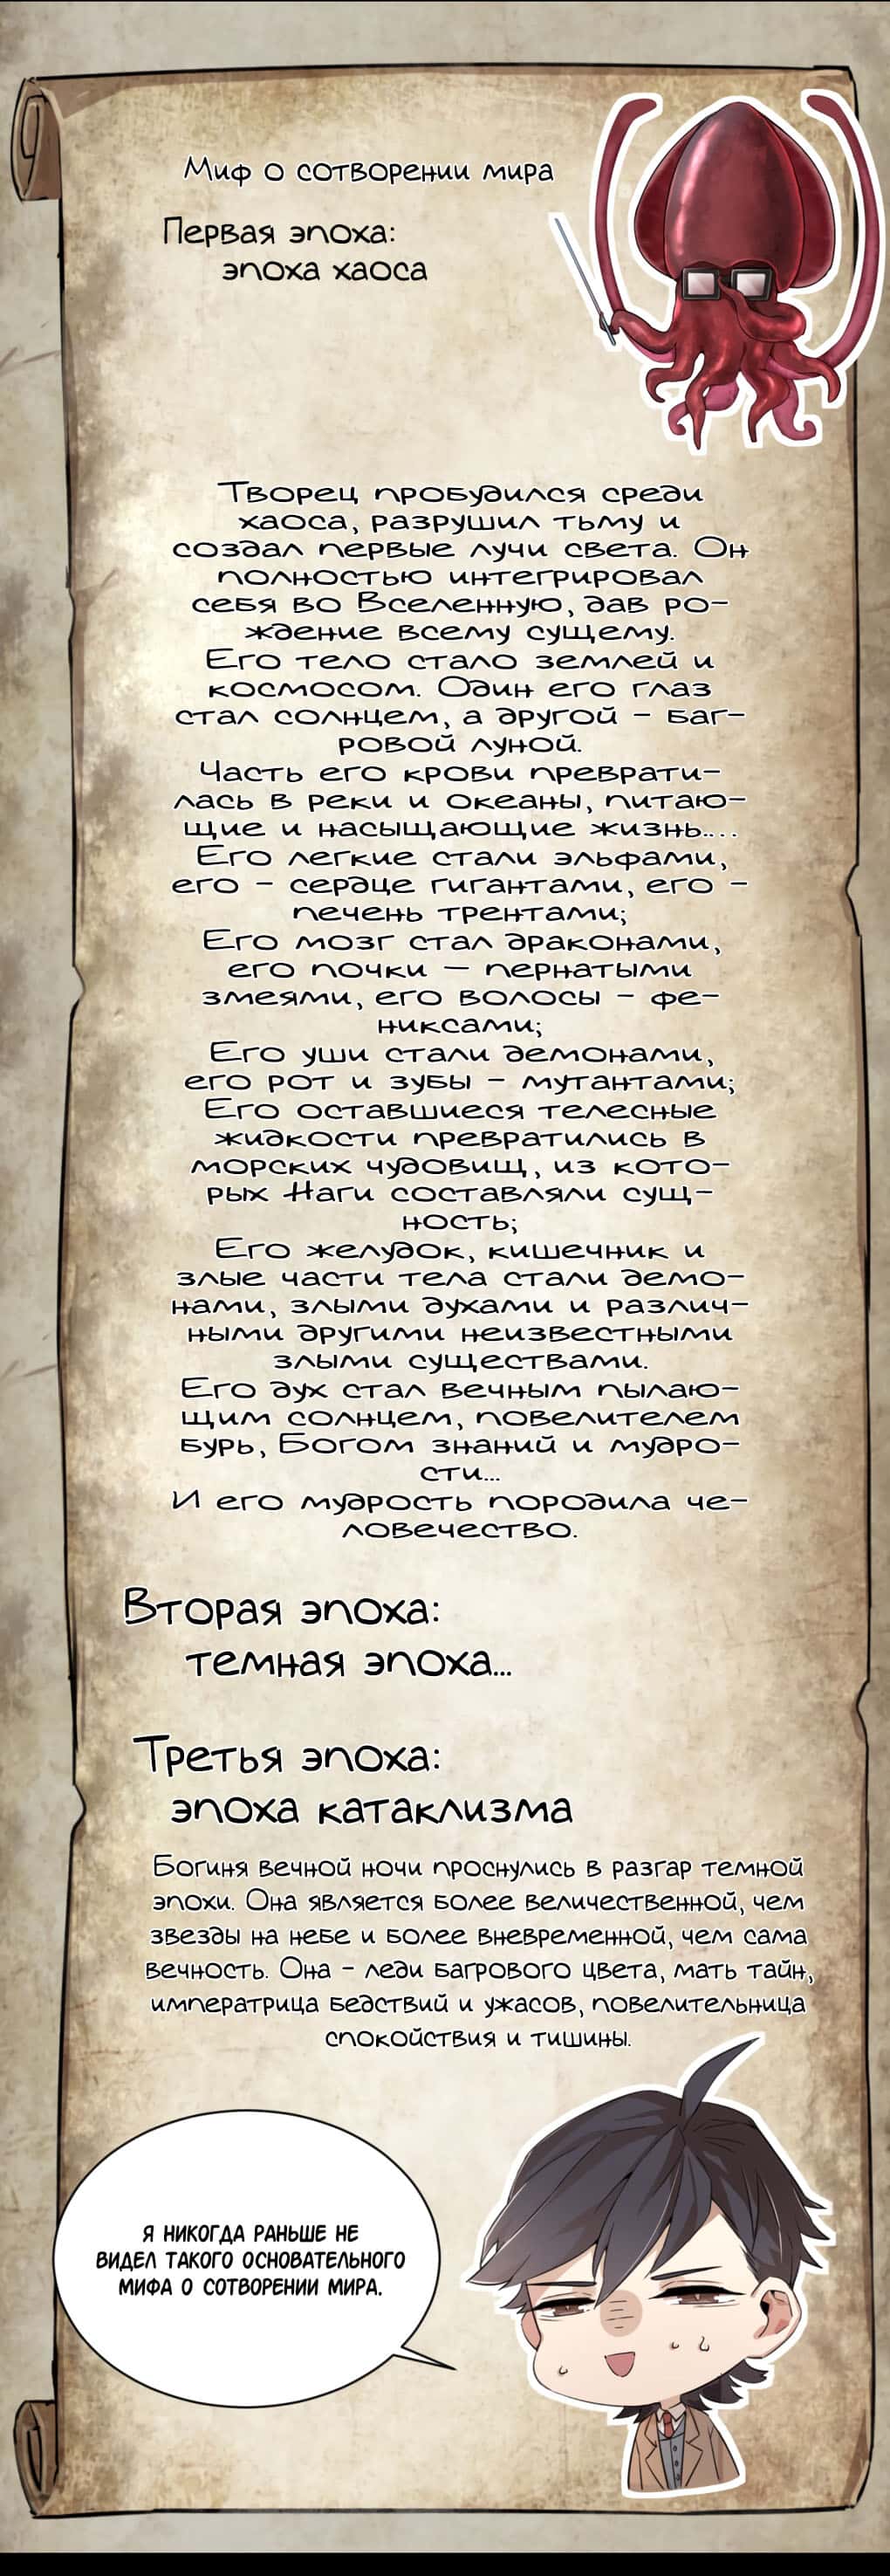 Миф о сотворении мира
Первая эпоха:
эпоха хаоса
Творец пробудился среди
хаоса, разрушил тьму и
создал первые лучи света. Он
полностью интегрировал
себя во Вселенную, дав ро-
ждение всему сущему.
Его тело стало землей и
космосом. Один его глаз
стал солнцем, а другой - баг-
ровой луной.
Часть его крови преврати-
лась в реки и океаны, питаю-
щие и насыщающие жизнь....
Его легкие стали эльфами,
его - сердце гигантами, его -
печень трентами;
Его мозг стал драконами,
его почки — пернатыми
змеями, его волосы - фе-
никсами;
Его уши стали демонами,
его рот и зубы - мутантами;
Его оставшиеся телесные
жидкости превратились в
морских чудовищ, из кото-
рых Наги составляли сущ-
ность;
Его желудок, кишечник и
злые части тела стали демо-
нами, злыми духами и различ-
ными другими неизвестными
злыми существами.
Его дух стал вечным пылаю-
щим солнцем, повелителем
бурь, Богом знаний и мудро-
сти...
И его мудрость породила че-
ловечество.
Вторая эпоха:
темная эпоха...
Третья эпоха:
эпоха катаклизма
Богиня вечной ночи проснулись в разгар темной
эпохи. Она является более величественной, чем
звезды на небе и более вневременной, чем сама
вечность. Она - леди багрового цвета, мать тайн,
императрица бедствий и ужасов, повелительница
спокойствия и тишины.
Я НИКОГДА РАНЬШЕ НЕ
ВИДЕЛ ТАКОГО ОСНОВАТЕЛЬНОГО
МИФА О СОТВОРЕНИИ МИРА.